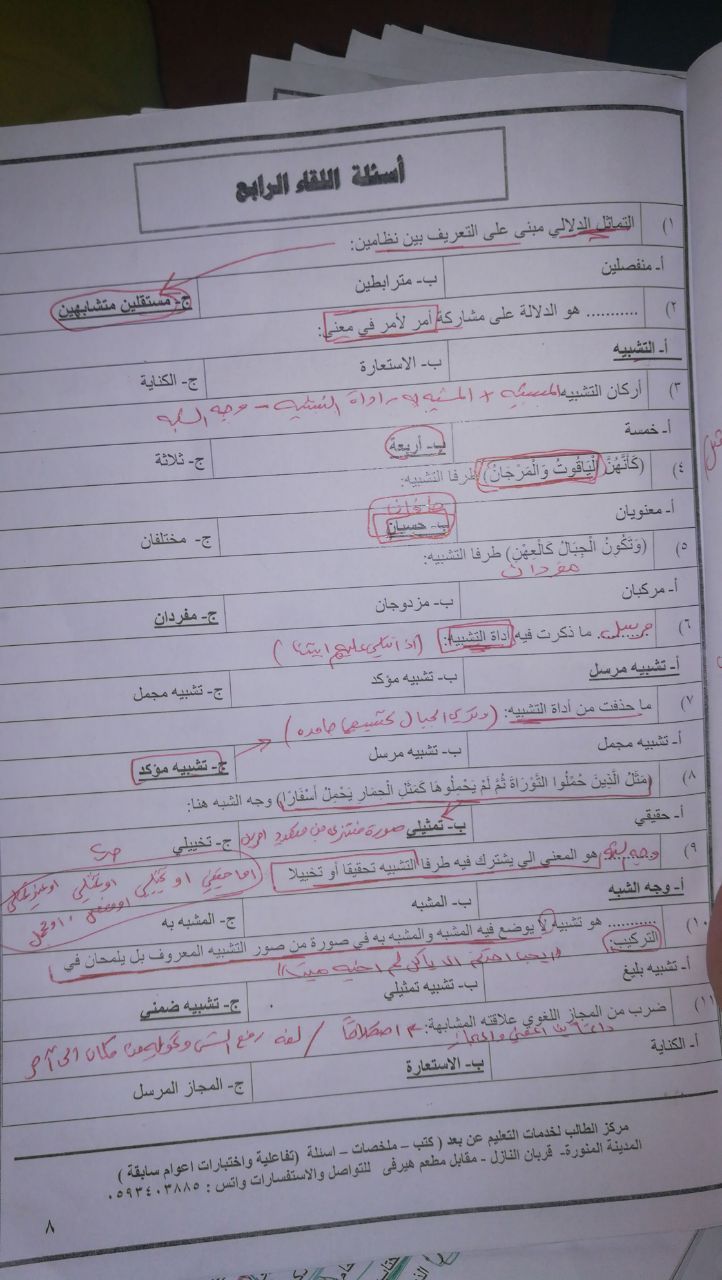 أسئلة اللقاء الرابع
١) التماثل الدلالي مبنى على التعريف بين نظامين:
أ- منفصلين ب- مترابطين ج- مستقلين متشابهين
٢) .......... هو الدلالة على مشاركة أمر لأمر في معنى:
أ- التشبيه ب- الاستعارة ج- الكناية
٣) أركان التشبيه المشبه + المشبه به - اداة التشبيه - وجه الشبه
أ- خمسة ب- أربعة ج- ثلاثة
٤) (كَأَنَّهُنَّ الْيَاقُوتُ وَالْمَرْجَانُ) طرفا التشبيه:
أ- معنويان ب- حسيان ج- مختلفان
٥) (وَتَكُونُ الْجِبَالُ كَالْعِهْنِ) طرفا التشبيه:
مفردان
أ- مركبان ب- مزدوجان ج- مفردان
٦) ما ذكرت فيه أداة التشبيه: (اذا تتلى عليهم ايتنا)
أ- تشبيه مرسل ب- تشبيه مؤكد ج- تشبيه مجمل
٧) ما حذفت من أداة التشبيه: (وترى الجبال تحسبها جامده)
أ- تشبيه مجمل ب- تشبيه مرسل ج- تشبيه مؤكد
٨) (مَثَلُ الَّذِينَ حُمِّلُوا التَّوْرَاةَ ثُمَّ لَمْ يَحْمِلُوهَا كَمَثَلِ الْحِمَارِ يَحْمِلُ أَسْفَارًا) وجه الشبه هنا:
أ- حقيقي ب- تمثيلي صورة منتزى من متعدد ج- تخييلي
٩) وجه لشبه هو المعنى الي يشترك فيه طرفا التشبيه تحقيقا أو تخييلا
اما حقيقي او تخيلي او تمثلي
أ- وجه الشبه ب- المشبه ج- المشبه به
١٠) .......... هو تشبيه لا يوضع فيه المشبه والمشبه به في صورة من صور التشبيه المعروف بل يلمحان في
التركيب: ايحب احدكم ان ياكل لحم اخيه ميتا
أ- تشبيه بليغ ب- تشبيه تمثيلي ج- تشبيه ضمني
١١) ضرب من المجاز اللغوي علاقته المشابهة: اصطلاحا / لغه رفع الشي وتحويله من مكان الى آخر
أ- الكناية ب- الاستعارة ج- المجاز المرسل
مركز الطالب لخدمات التعليم عن بعد ( كتب – ملخصات – اسئلة (تفاعلية واختبارات اعوام سابقة )
المدينة المنورة- قربان النازل - مقابل مطعم هيرفى للتواصل والاستفسارات واتس : ٠٥٩٣٤٠٣٨٨٥
٨